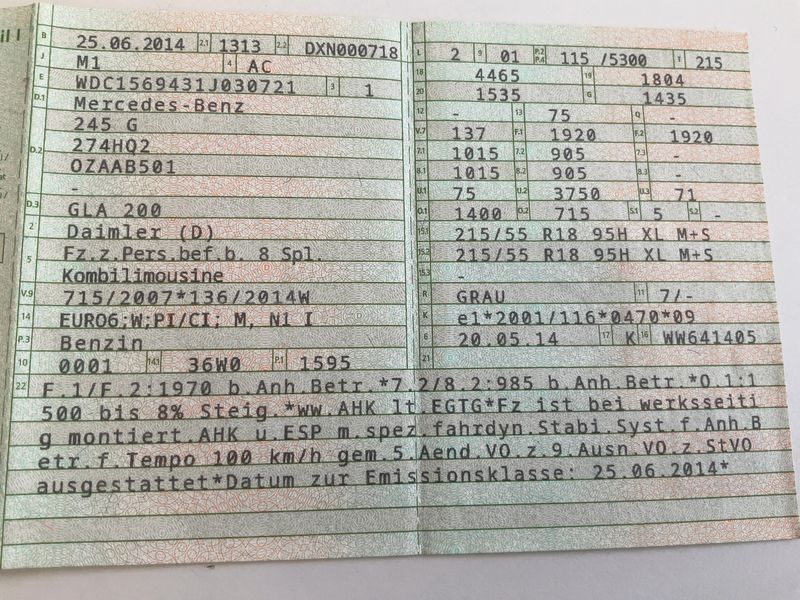 B 25.06.2014 2.1 1313 2.2 DXN000718
J M1 4 AC
E WDC1569431J030721 3 1
D.1 Mercedes-Benz
245 G
D.2 274HQ2
OZAAB501
-
D.3 GLA 200
2 Daimler (D)
5 Fz.z.Pers.bef.b. 8 Spl.
Kombilimousine
V.9 715/2007*136/2014W
14 EURO6;W;PI/CI; M, N1 I
P.3 Benzin
10 0001 14.1 36W0 P.1 1595
L 2 9 01 P.2 P.4 115 /5300 T 215
18 4465 19 1804
20 1535 G 1435
12 - 13 75 Q -
V.7 137 F.1 1920 F.2 1920
7.1 1015 7.2 905 7.3 -
8.1 1015 8.2 905 8.3 -
U.1 75 U.2 3750 U.3 71
O.1 1400 O.2 715 S.1 5 S.2 -
15.1 215/55 R18 95H XL M+S
15.2 215/55 R18 95H XL M+S
15.3 -
R GRAU 11 7/-
K e1*2001/116*0470*09
6 20.05.14 17 K 16 WW641405
21
22 F.1/F.2:1970 b.Anh.Betr.*7.2/8.2:985 b.Anh.Betr.*O.1:1
500 bis 8% Steig.*ww.AHK lt.EGTG*Fz ist bei werksseiti
g montiert.AHK u.ESP m.spez.fahrdyn.Stabi.Syst.f.Anh.B
etr.f.Tempo 100 km/h gem.5.Aend.VO.z.9.Ausn.VO.z.StVO
ausgestattet*Datum zur Emissionsklasse: 25.06.2014*